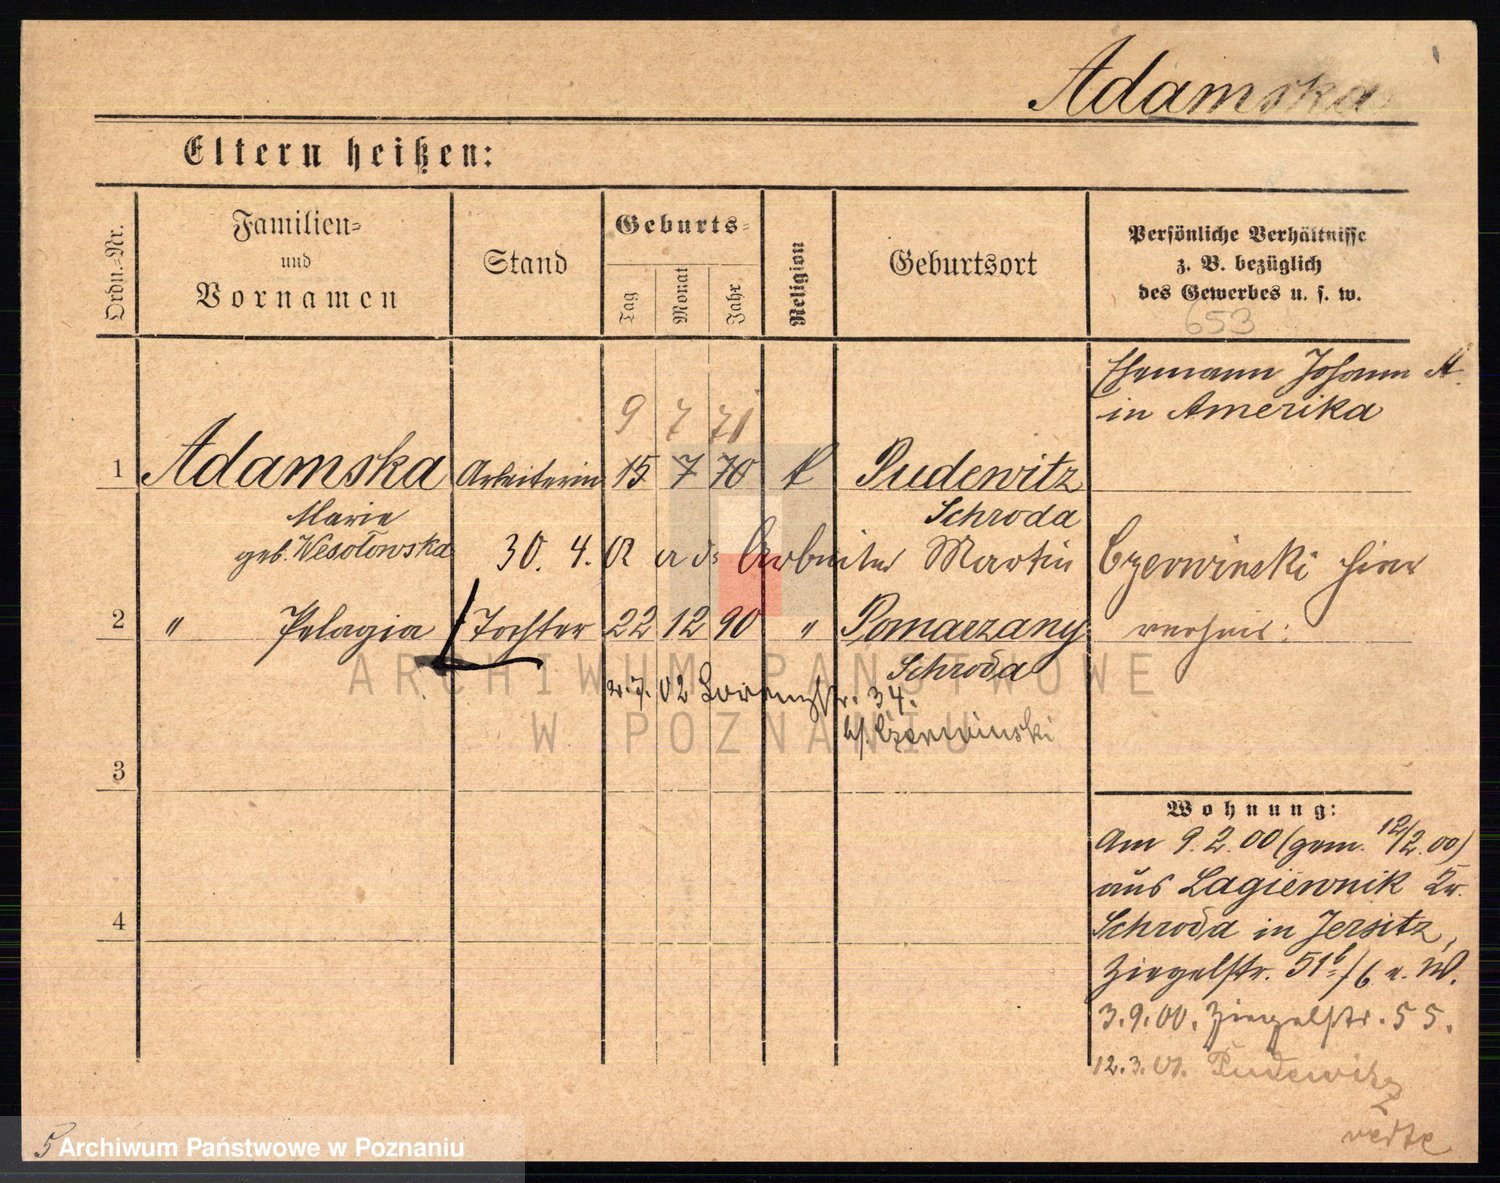 Adamska
Eltern heißen:
Ordn.-Nr.
Familien-
und
Vornamen
Stand
Geburts-
Tag
Monat
Jahr
Religion
Geburtsort
Persönliche Verhältnisse
z. B. bezüglich
des Gewerbes u. s. w.
653
Ehemann Johann A.
in Amerika
9 7 71
1 Adamska Arbeiterin 15 7 70 k Pudewitz
Marie Schroda
geb. Wesołowska
30. 4. 01 Arbeiter Martin Czerwinski hier
2 " Pelagia Tochter 22 12 90 " Pomarzany
Schroda
7. 02 34.
b/ Czerwinski
3
4
Wohnung:
Am 9. 2. 00 (gem. 12/2. 00)
aus Lagiewnik Kr.
Schroda in Jersitz,
Ziegelstr. 51b/6 e. W.
3. 9. 00. Ziegelstr. 55.
12. 3. 01. Pudewitz
verte
ARCHIWUM PAŃSTWOWE
W POZNANIU
5
Archiwum Państwowe w Poznaniu